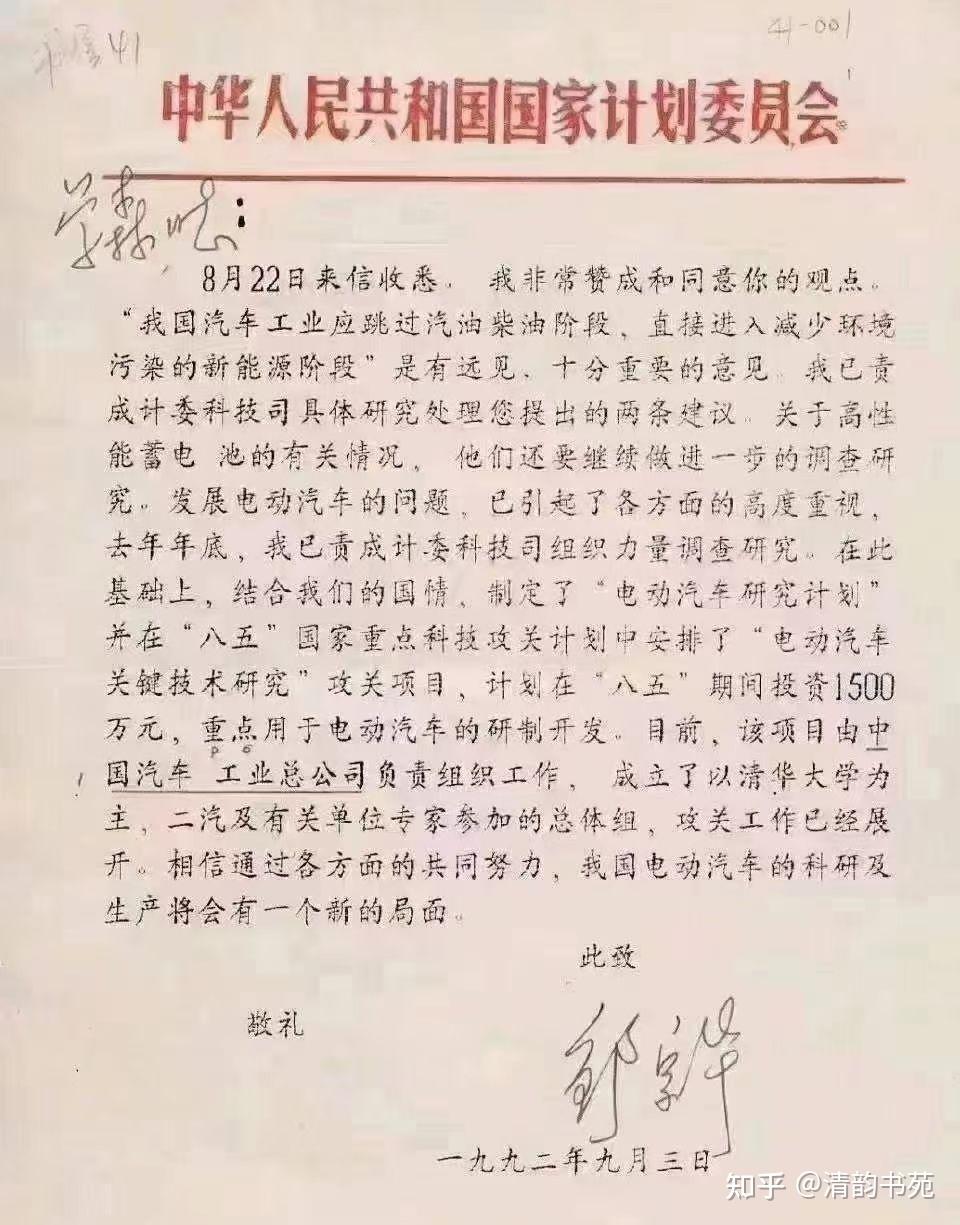 41
41-001
中华人民共和国国家计划委员会
学森同志:
8月22日来信收悉。 我非常赞成和同意你的观点。
“我国汽车工业应跳过汽油柴油阶段，直接进入减少环境
污染的新能源阶段”是有远见、十分重要的意见。我已责
成计委科技司具体研究处理您提出的两条建议。关于高性
能蓄电 池的有关情况， 他们还要继续做进一步的调查研
究。发展电动汽车的问题，已引起了各方面的高度重视，
去年年底，我已责成计委科技司组织力量调查研究。在此
基础上，结合我们的国情，制定了“电动汽车研究计划”
并在“八五”国家重点科技攻关计划中安排了“电动汽车
关键技术研究”攻关项目，计划在“八五”期间投资1500
万元，重点用于电动汽车的研制开发。目前，该项目由中
国汽车 工业总公司负责组织工作， 成立了以清华大学为
主，二汽及有关单位专家参加的总体组，攻关工作已经展
开。相信通过各方面的共同努力，我国电动汽车的科研及
生产将会有一个新的局面。
此致
敬礼
邹家华
一九九二年九月三日
知乎 @清韵书苑